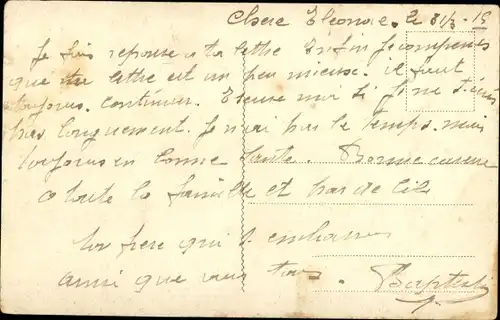 Chere Eleonore. le 31/3-15
Je fais reponse a ta lettre Enfin je comprends
que ta lettre est un peu mieux. il faut
toujours continuer. Excuse moi si je ne t'écris
pas longuement. Je n'ai pas le temps. mais
toujours en bonne Sante. Bonne
a toute la famille et
ton frere qui t'embrasse
ainsi que vous tous. Baptiste